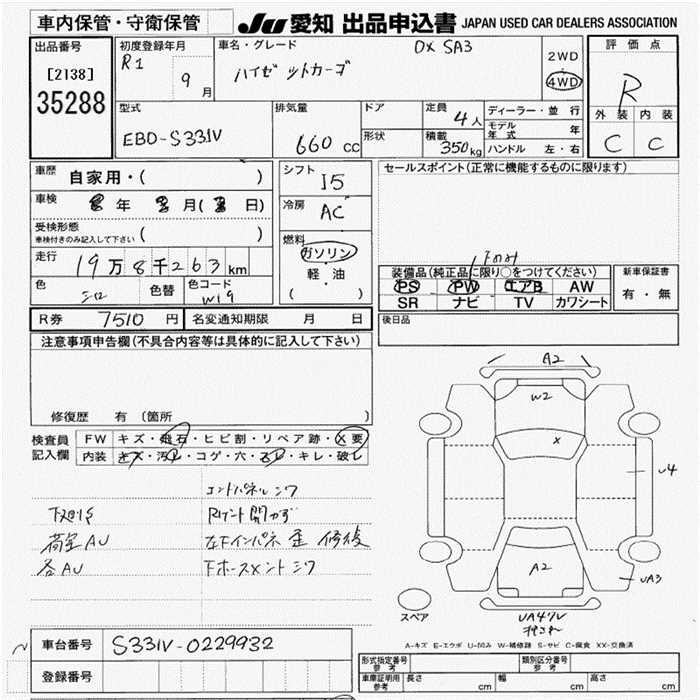 車内保管・守衛保管
JU 愛知 出品申込書 JAPAN USED CAR DEALERS ASSOCIATION
出品番号
[2138]
35288
初度登録年月
R1 9月
車名・グレード
DX SA3
ハイゼットカーゴ
2WD
4WD
評価点
R
外装 内装
C C
型式
EBD-S331V
排気量
660 cc
ドア
形状
定員
4人
積載
350kg
ディーラー・並行
モデル年式 年
ハンドル 左・右
車歴 自家用・( )
車検 年 月( 日)
受検形態
車検付きのみ記入して下さい ( )
走行 19万8千263km
色 シロ 色替 色コード W19
シフト
I5
冷房
AC
燃料
ガソリン
軽・油
( )
セールスポイント(正常に機能するものに限ります)
装備品(純正品に限り○をつけてください)
PS PW エアB AW
SR ナビ TV カワシート
新車保証書
有・無
R券 7510円 名変通知期限 月 日
後日品
注意事項申告欄(不具合内容等は具体的に記入して下さい)
修復歴 有(箇所 )
検査員記入欄
FW キズ・飛石・ヒビ割・リペア跡・X要
内装 キズ・汚レ・コゲ・穴・スレ・キレ・破レ
コアパネルシワ
下廻りS
荷室AU
各AU
A2
W2
X
U4
A2
UA3
スペア
A-キズ E-エクボ U-凹み W-補修跡 S-サビ C-腐食 XX-交換済
車台番号 S331V-0229932
登録番号
型式指定番号 参考 類別区分番号 参考
車庫証明用 参考 長さ cm 幅 cm 高さ cm